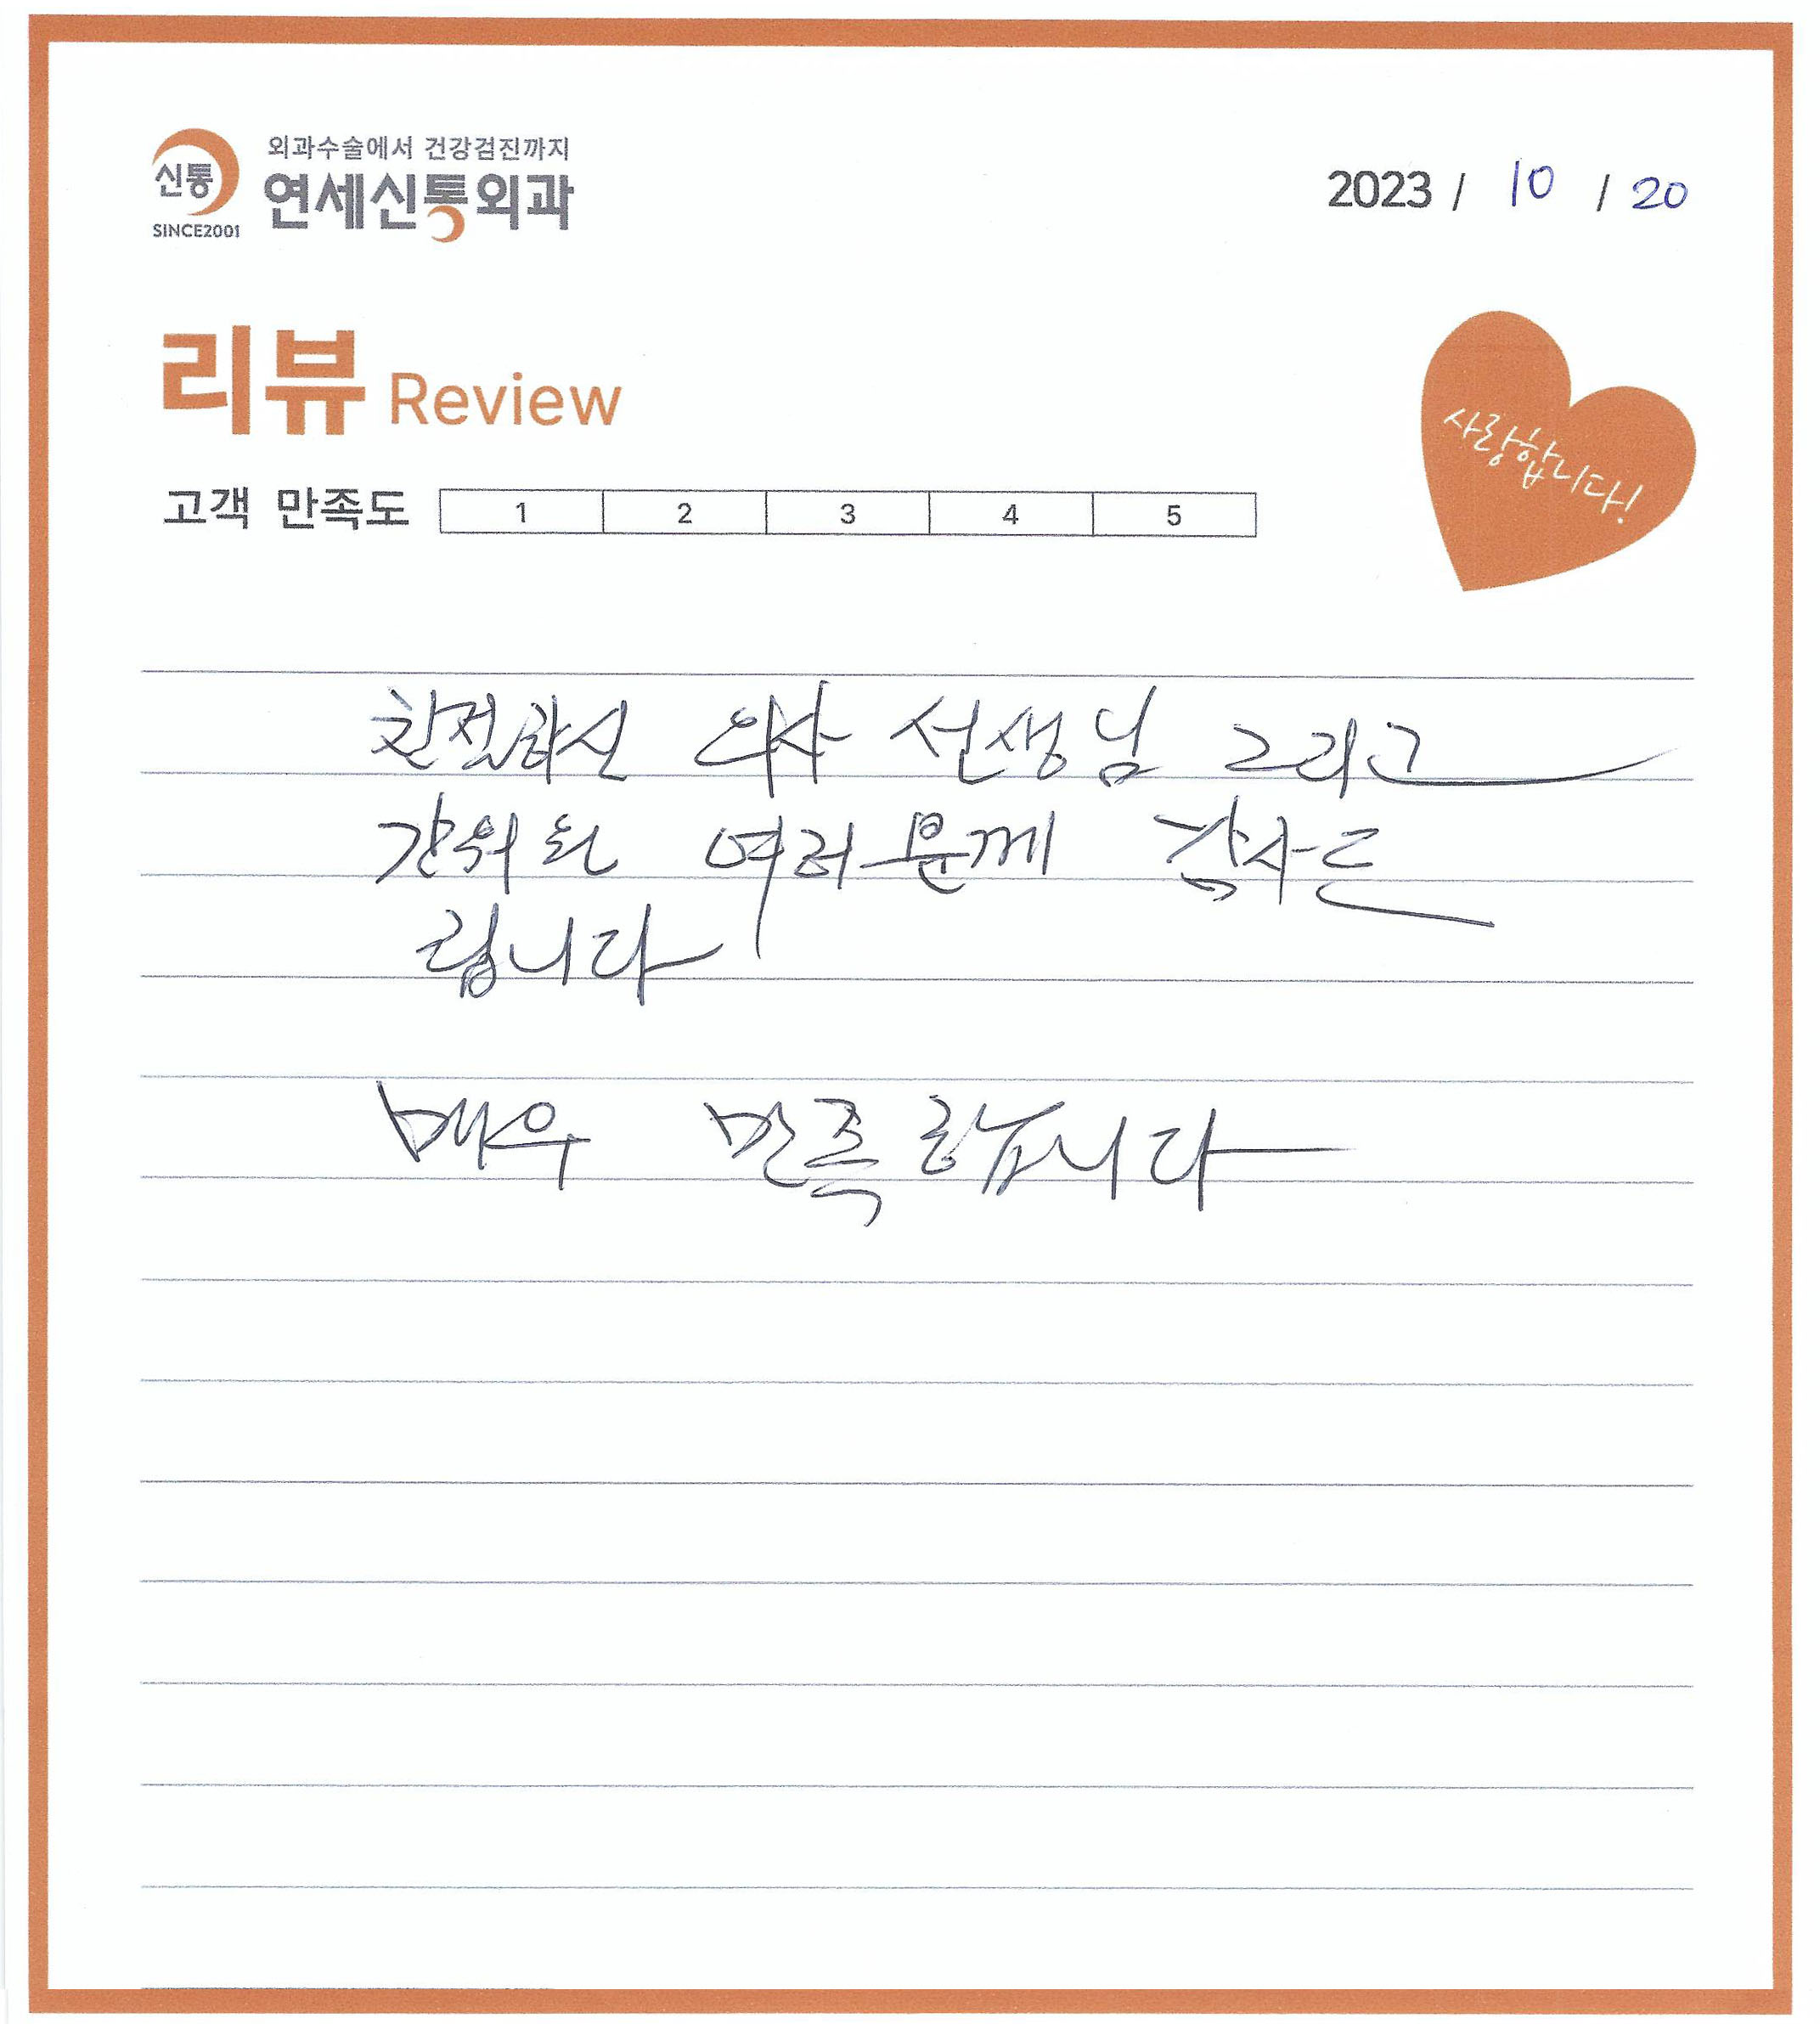 신통
SINCE2001
외과수술에서 건강검진까지
연세신통외과
2023 / 10 / 20
리뷰 Review
사랑합니다!
고객 만족도 1 2 3 4 5
친절하신 의사 선생님 그리고
여러분께 감사드
립니다
매우 만족합니다